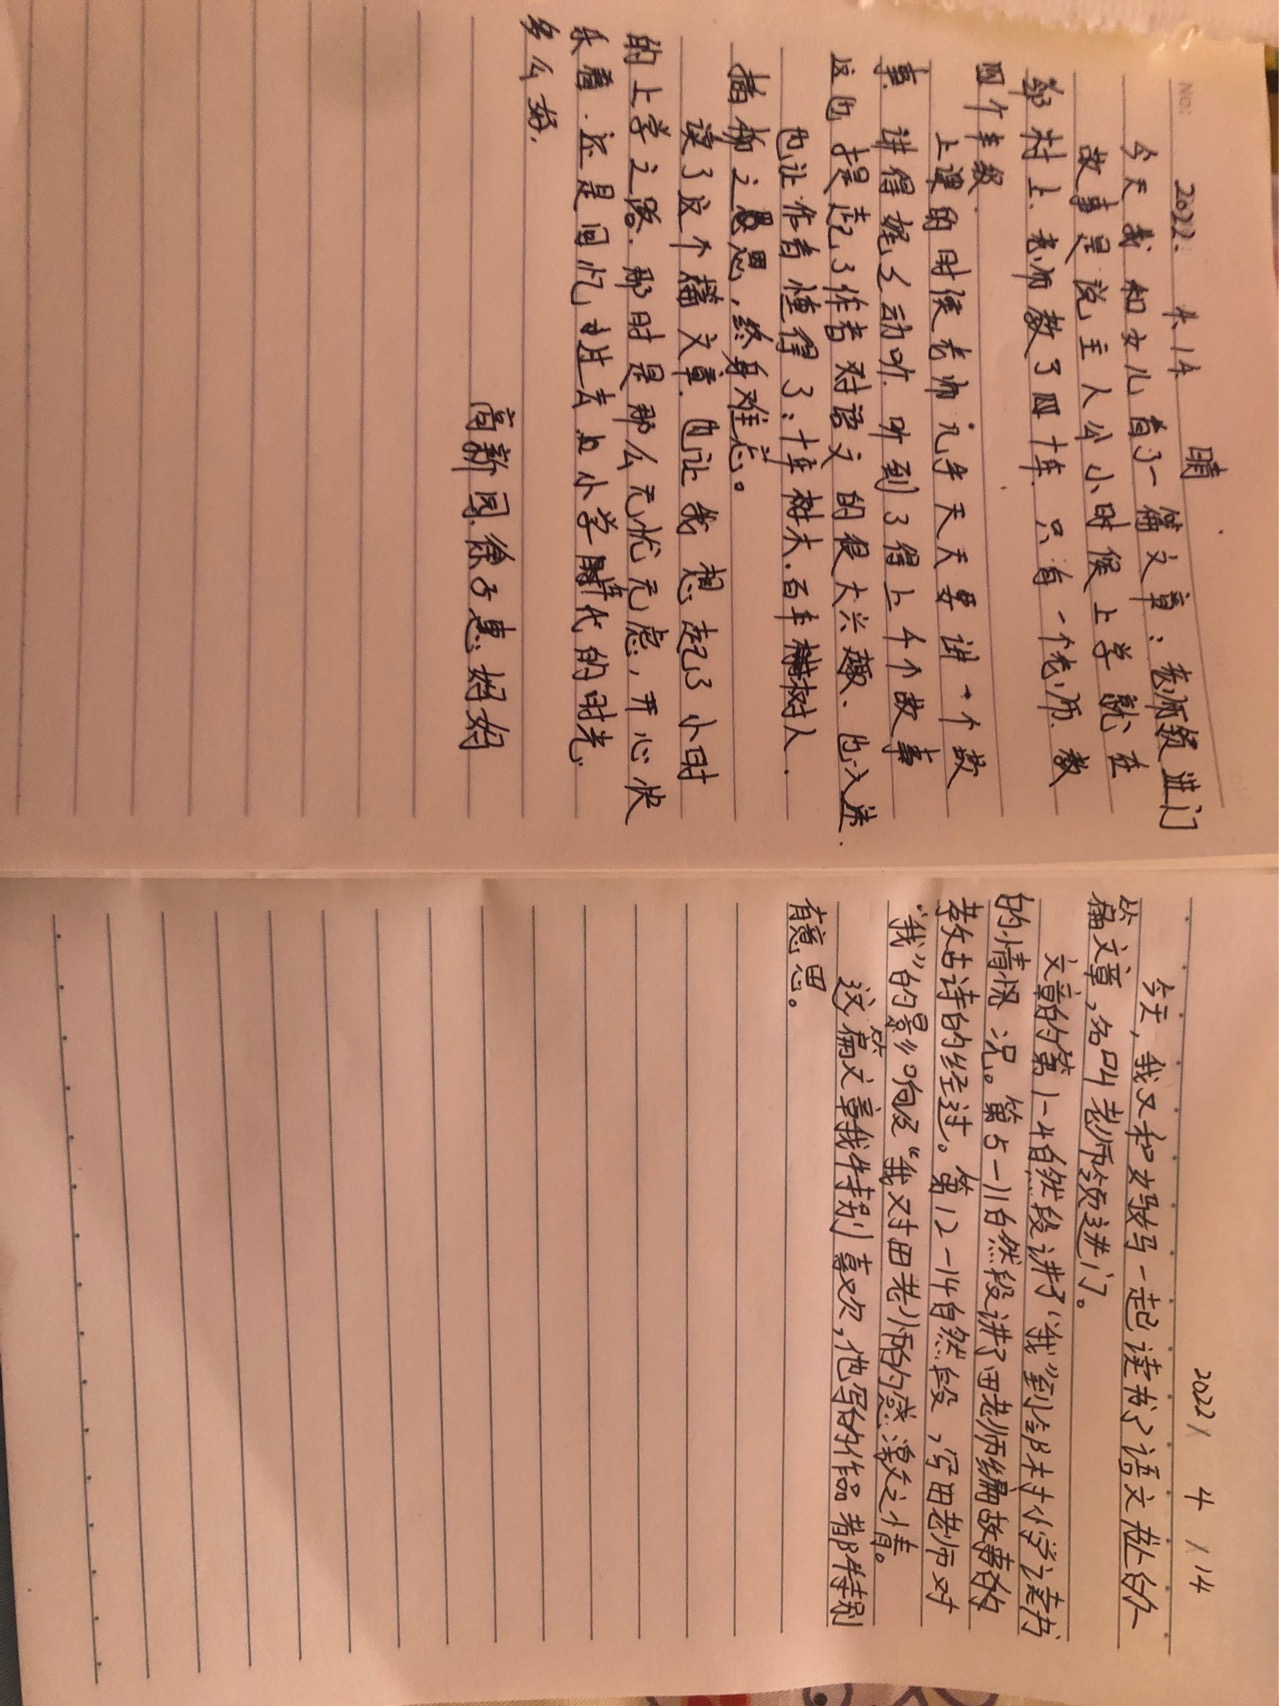 NO:
2022. 4.14 晴
今天我和女儿看了一篇文章:老师领进门
故事是说主人公小时候上学就在
邻村上.老师教了四十年.只有一个老师.教
四个年级.
上课的时候老师几乎天天要讲一个故
事.讲得娓娓动听.听到了得上个故事
这也提起了作者对语文的很大兴趣、也入迷.
也让作者懂得了:十年树木.百年树人.
插柳之恩,终身难忘。
读了这个篇文章.也让我想起了小时
的上学之路.那时是那么无忧无虑,开心快
乐着.还是回忆过去小学时代的时光.
多么好.
高新园.徐子惠妈妈
2022 / 4 / 14
今天,我又和妈妈一起读了语文书上的
篇文章,名叫老师领进门。
文章的第1-4自然段讲了“我”到邻村小学读书
的情况。第5-11自然段讲了田老师编故事的
教古诗的经过。第12-14自然段,写田老师对
“我”的影响及“我”对田老师的感激之情。
这篇文章我特别喜欢,他写的作品都特别
有意思。